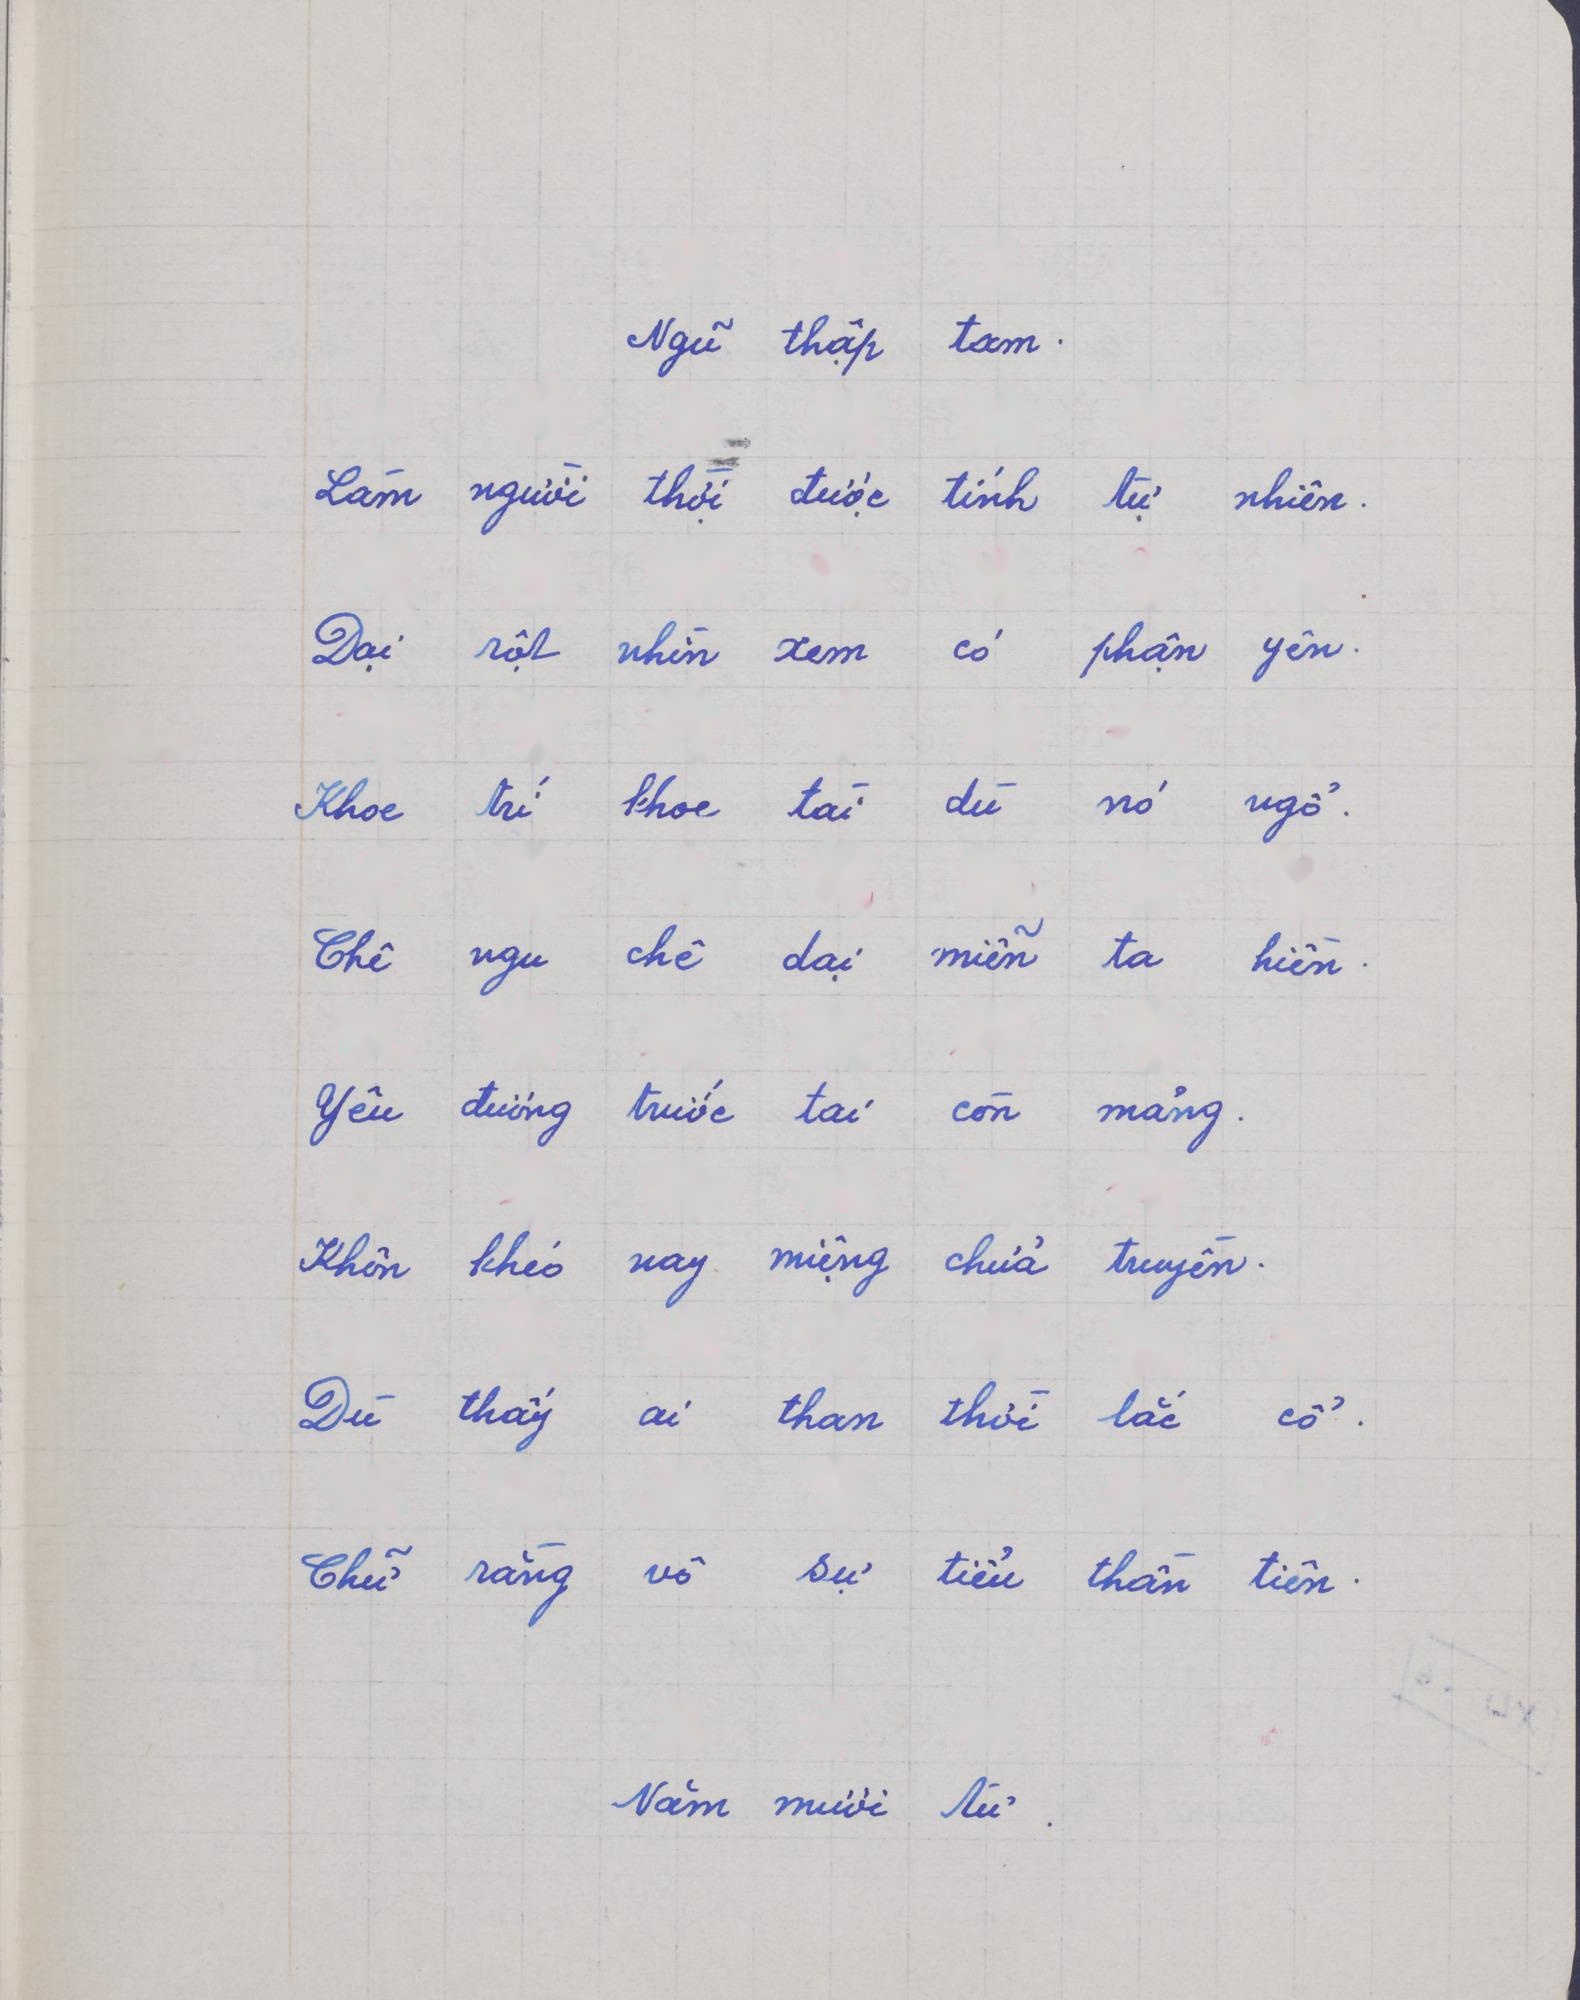 Ngũ thập tam.
Làm người thời được tính tự nhiên.
Dại rột nhìn xem có phận yên.
Khoe trí khoe tài dù nó ngổ.
Chê ngu chê dại miễn ta hiền.
Yêu đương trước tai còn mảng.
Khôn khéo nay miệng chửa truyền.
Dù thấy ai than thời lắc cổ.
Chữ rằng vô sự tiểu thần tiên.
Năm mươi tư.